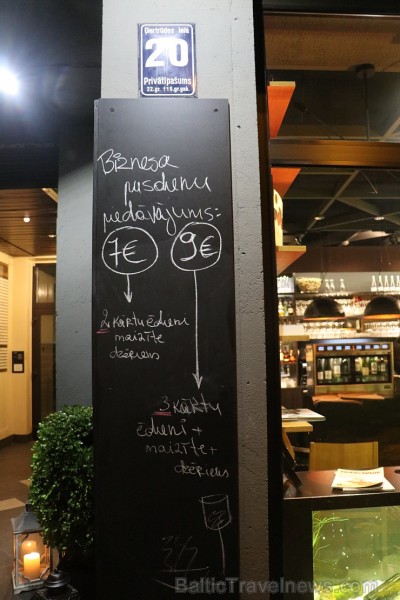 Ģertrūdes iela
20
Privātīpašums
22.gr. 119.gr.gab.
Biznesa
pusdienu
piedāvājums:
7€
9€
2 kārtu ēdieni
maizīte
dzēriens
3 kārtu
ēdieni +
maizīte +
dzēriens
BalticTravelnews.com